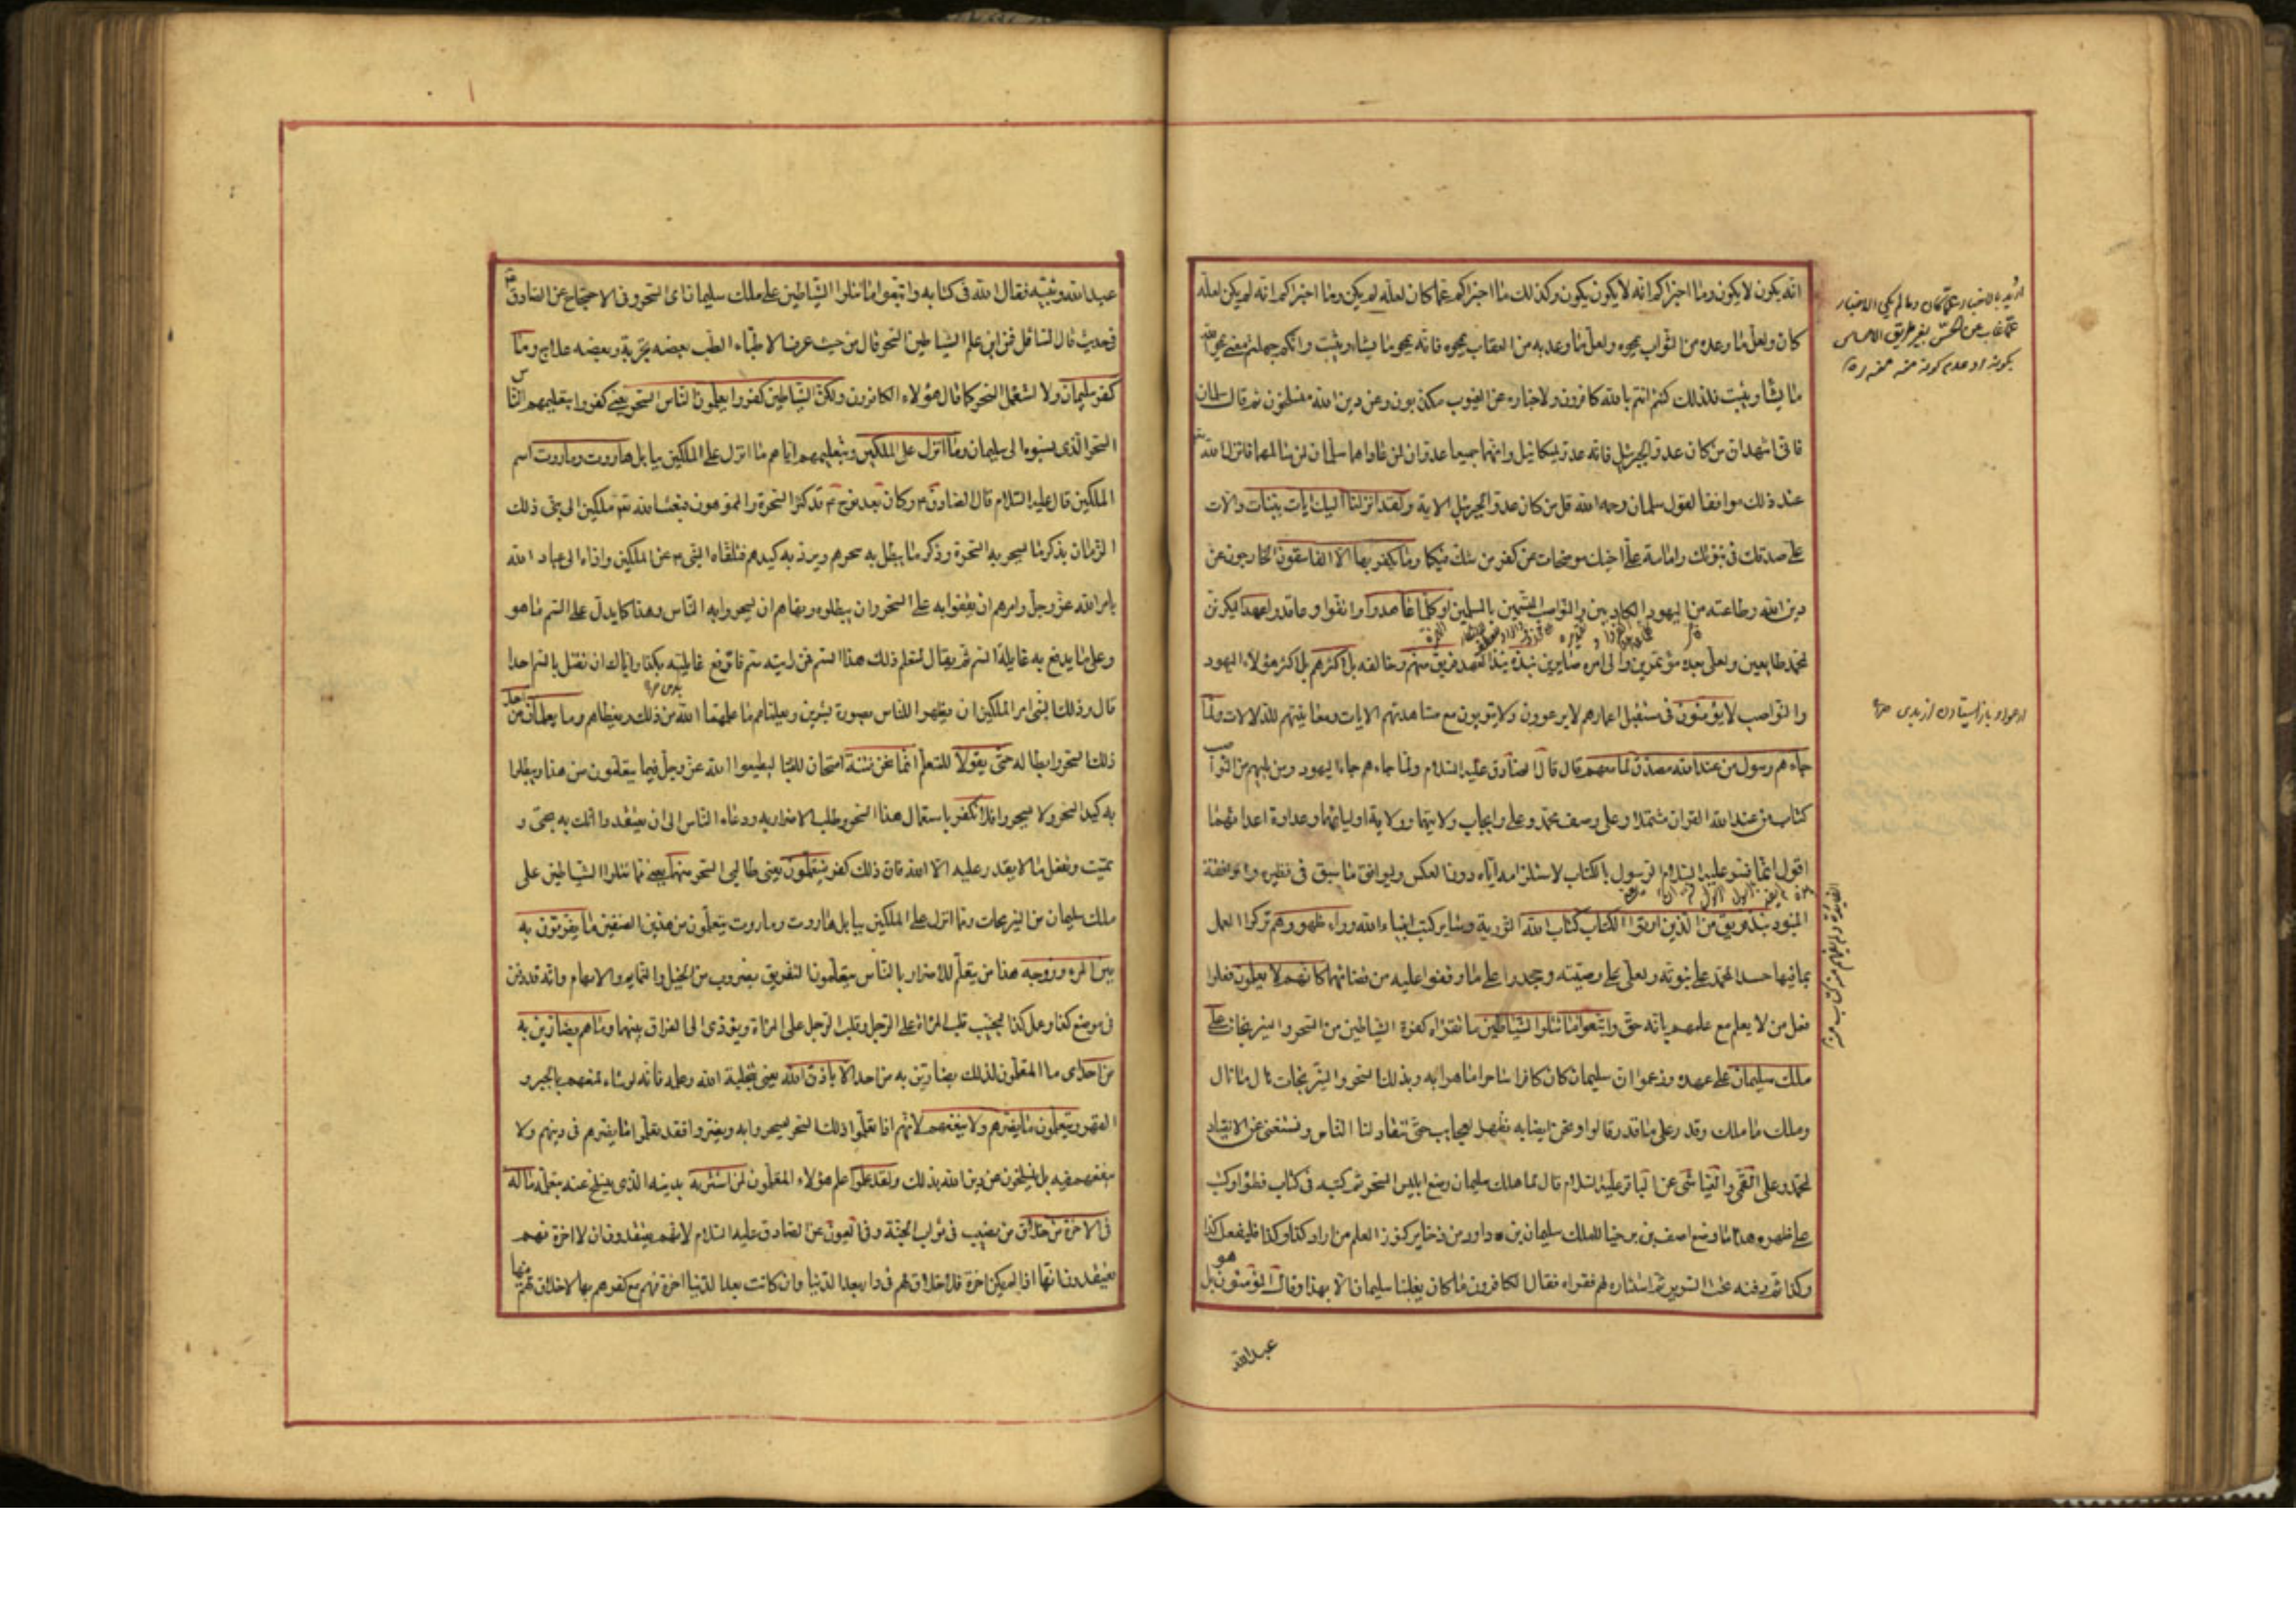 انه يكون لا يكون وما اخبركم انه لا يكون يكون وكذلك ما اخبركم عما كان لعله لم يكن وما اخبركم انه لم يكن لعله
كان ولعل ما وعده من الثواب يمحوه ولعل ما وعد به من العقاب يمحوه فانه يمحو ما يشاء ويثبت وانكم جهلتم معنى يمحو الله
ما يشاء ويثبت فلذلك كنتم انتم بالله كافرون ولاخباره عن الغيوب مكذبون وعن دين الله منسلخون ثم قال سلمان
فاني اشهد ان من كان عدوا لجبرئيل فانه عدو لميكائيل وانهما جميعا عدوان لمن عاداهما سلمان لمن سالمهما فانزل الله
عند ذلك موافقا لقول سلمان رحمه الله قل من كان عدوا لجبرئيل الاية ولقد انزلنا اليك ايات بينات دالات
على صدقك في نبوتك وامامة علي اخيك موضحات عن كفر من شك فيكما وما يكفر بها الا الفاسقون الخارجون عن
دين الله وطاعته من اليهود الكاذبين والنواصب المتسمين بالمسلمين اوكلما عاهدوا واثقوا وعاقدوا عهدا ليكونن
لمحمد طايعين ولعلي بعده مؤتمرين والى امره صايرين نبذه نبذ العهد فريق منهم وخالفه بل اكثرهم بل اكثر هؤلاء اليهود
والنواصب لا يؤمنون في مستقبل اعمارهم لا يرعوون ولا يتوبون مع مشاهدتهم الايات ومعاينتهم للدلالات ولما
جاءهم رسول من عند الله مصدق لما معهم قال قال الصادق عليه السلام ولما جاءهم جاء اليهود ومن يليهم من النواصب
كتاب من عند الله القران مشتملا على وصف محمد وعلي وايجاب ولايتهما وولاية اوليائهما وعداوة اعدائهما
اقول انما فسر عليه السلام الرسول بالكتاب لاستلزامه اياه دون العكس وليوافق ما سبق في نظيره وموافقة
المنبوذ نبذ فريق من الذين اوتوا الكتاب كتاب الله التورية وساير كتب انبياء الله وراء ظهورهم تركوا العمل
بما فيها حسدا لمحمد على نبوته ولعلي على وصيته وجحدوا على ما وقفوا عليه من فضائلهما كانهم لا يعلمون فعلوا
فعل من لا يعلم مع علمهم بانه حق واتبعوا ما تتلوا الشياطين ما تقراه كفرة الشياطين من السحر والنيرنجات على
ملك سليمان على عهده وزعموا ان سليمان كان كافرا ساحرا ماهرا به وبذلك السحر والنيرنجات نال ما نال
وملك ما ملك وقدر على ما قدر قالوا ونحن ايضا به نظهر العجايب حتى تنقاد لنا الناس ونستغني عن الانقياد
لمحمد وعلي القمي والعياشي عن الباقر عليه السلام قال لما هلك سليمان وضع ابليس السحر ثم كتبه في كتاب فطواه وكتب
على ظهره هذا ما وضع اصف بن برخيا للملك سليمان بن داود من ذخاير كنوز العلم من اراد كذا وكذا فليفعل كذا
وكذا ثم دفنه تحت السرير ثم استثاره لهم فقراه فقال الكافرون ما كان يغلبنا سليمان الا بهذا وقال المؤمنون بل هو
عبد الله
عبد الله ونبيه فقال الله في كتابه واتبعوا ما تتلوا الشياطين على ملك سليمان اي السحر وفي الاحتجاج عن الصادق
في حديث قال السائل فمن اين علم الشياطين السحر قال من حيث عرف الاطباء الطب بعضه تجربة وبعضه علاج وما
كفر سليمان ولا استعمل السحر كما قال هؤلاء الكافرون ولكن الشياطين كفروا يعلمون الناس السحر يعني كفروا بتعليمهم الناس
السحر الذي نسبوه الى سليمان وما انزل على الملكين وبتعليمهم اياهم ما انزل على الملكين ببابل هاروت وماروت اسم
الملكين قال عليه السلام قال الصادق وكان بعد نوح قد كثر السحرة والمموهون فبعث الله ملكين الى نبي ذلك
الزمان بذكر ما يسحر به السحرة وذكر ما يبطل به سحرهم ويرد به كيدهم فتلقاه النبي عن الملكين واداه الى عباد الله
بامر الله عز وجل وامرهم ان يقفوا به على السحر وان يبطلوه ونهاهم ان يسحروا به الناس وهذا كما يدل على السم ما هو
وعلى ما يدفع به غايلة السم ثم يقال لمتعلم ذلك هذا السم فمن رايته سم فادفع غايلته بكذا واياك ان تقتل بالسم احدا
قال وذلك النبي امر الملكين ان يظهرا للناس بصورة بشرين ويعلماهم ما علمهما الله من ذلك ويعظاهم وما يعلمان من احد
ذلك السحر وابطاله حتى يقولا للمتعلم انما نحن فتنة امتحان للعباد ليطيعوا الله عز وجل فيما يتعلمون من هذا ويبطلوا
به كيد السحر ولا يسحروا فلا تكفر باستعمال هذا السحر وطلب الاضرار به ودعاء الناس الى ان يعتقدوا انك به تحيي و
تميت وتفعل ما لا يقدر عليه الا الله فان ذلك كفر فيتعلمون يعني طالبي السحر منهما يعني مما تتلوا الشياطين على
ملك سليمان من النيرنجات وما انزل على الملكين ببابل هاروت وماروت يتعلمون من هذين الصنفين ما يفرقون به
بين المرء وزوجه هذا من يتعلم للاضرار بالناس يتعلمون التفريق بضروب من الحيل والتمايم والايهام وانه قد دفن
في موضع كذا وعمل كذا ليحبب قلب المراة على الرجل وقلب الرجل على المراة ويؤدي الى الفراق بينهما وما هم بضارين به
من احد اي ما المتعلمون لذلك بضارين به من احد الا باذن الله يعني بتخلية الله وعلمه فانه لو شاء لمنعهم بالجبر و
القهر ويتعلمون ما يضرهم ولا ينفعهم لانهم اذا تعلموا ذلك السحر ليسحروا به ويضروا فقد تعلموا ما يضرهم في دينهم ولا
ينفعهم فيه بل ينسلخون عن دين الله بذلك ولقد علموا علم هؤلاء المتعلمون لمن اشتريه بدينه الذي ينسلخ عنه بتعلمه ما له
في الاخرة من خلاق من نصيب في ثواب الجنة وفي العيون عن الصادق عليه السلام لانهم يعتقدون ان لا اخرة فهم
يعتقدون انها اذا لم يكن اخرة فلا خلاق لهم في دار بعد الدنيا وان كانت بعد الدنيا اخرة فهم مع كفرهم بها لا خلاق لهم فيها